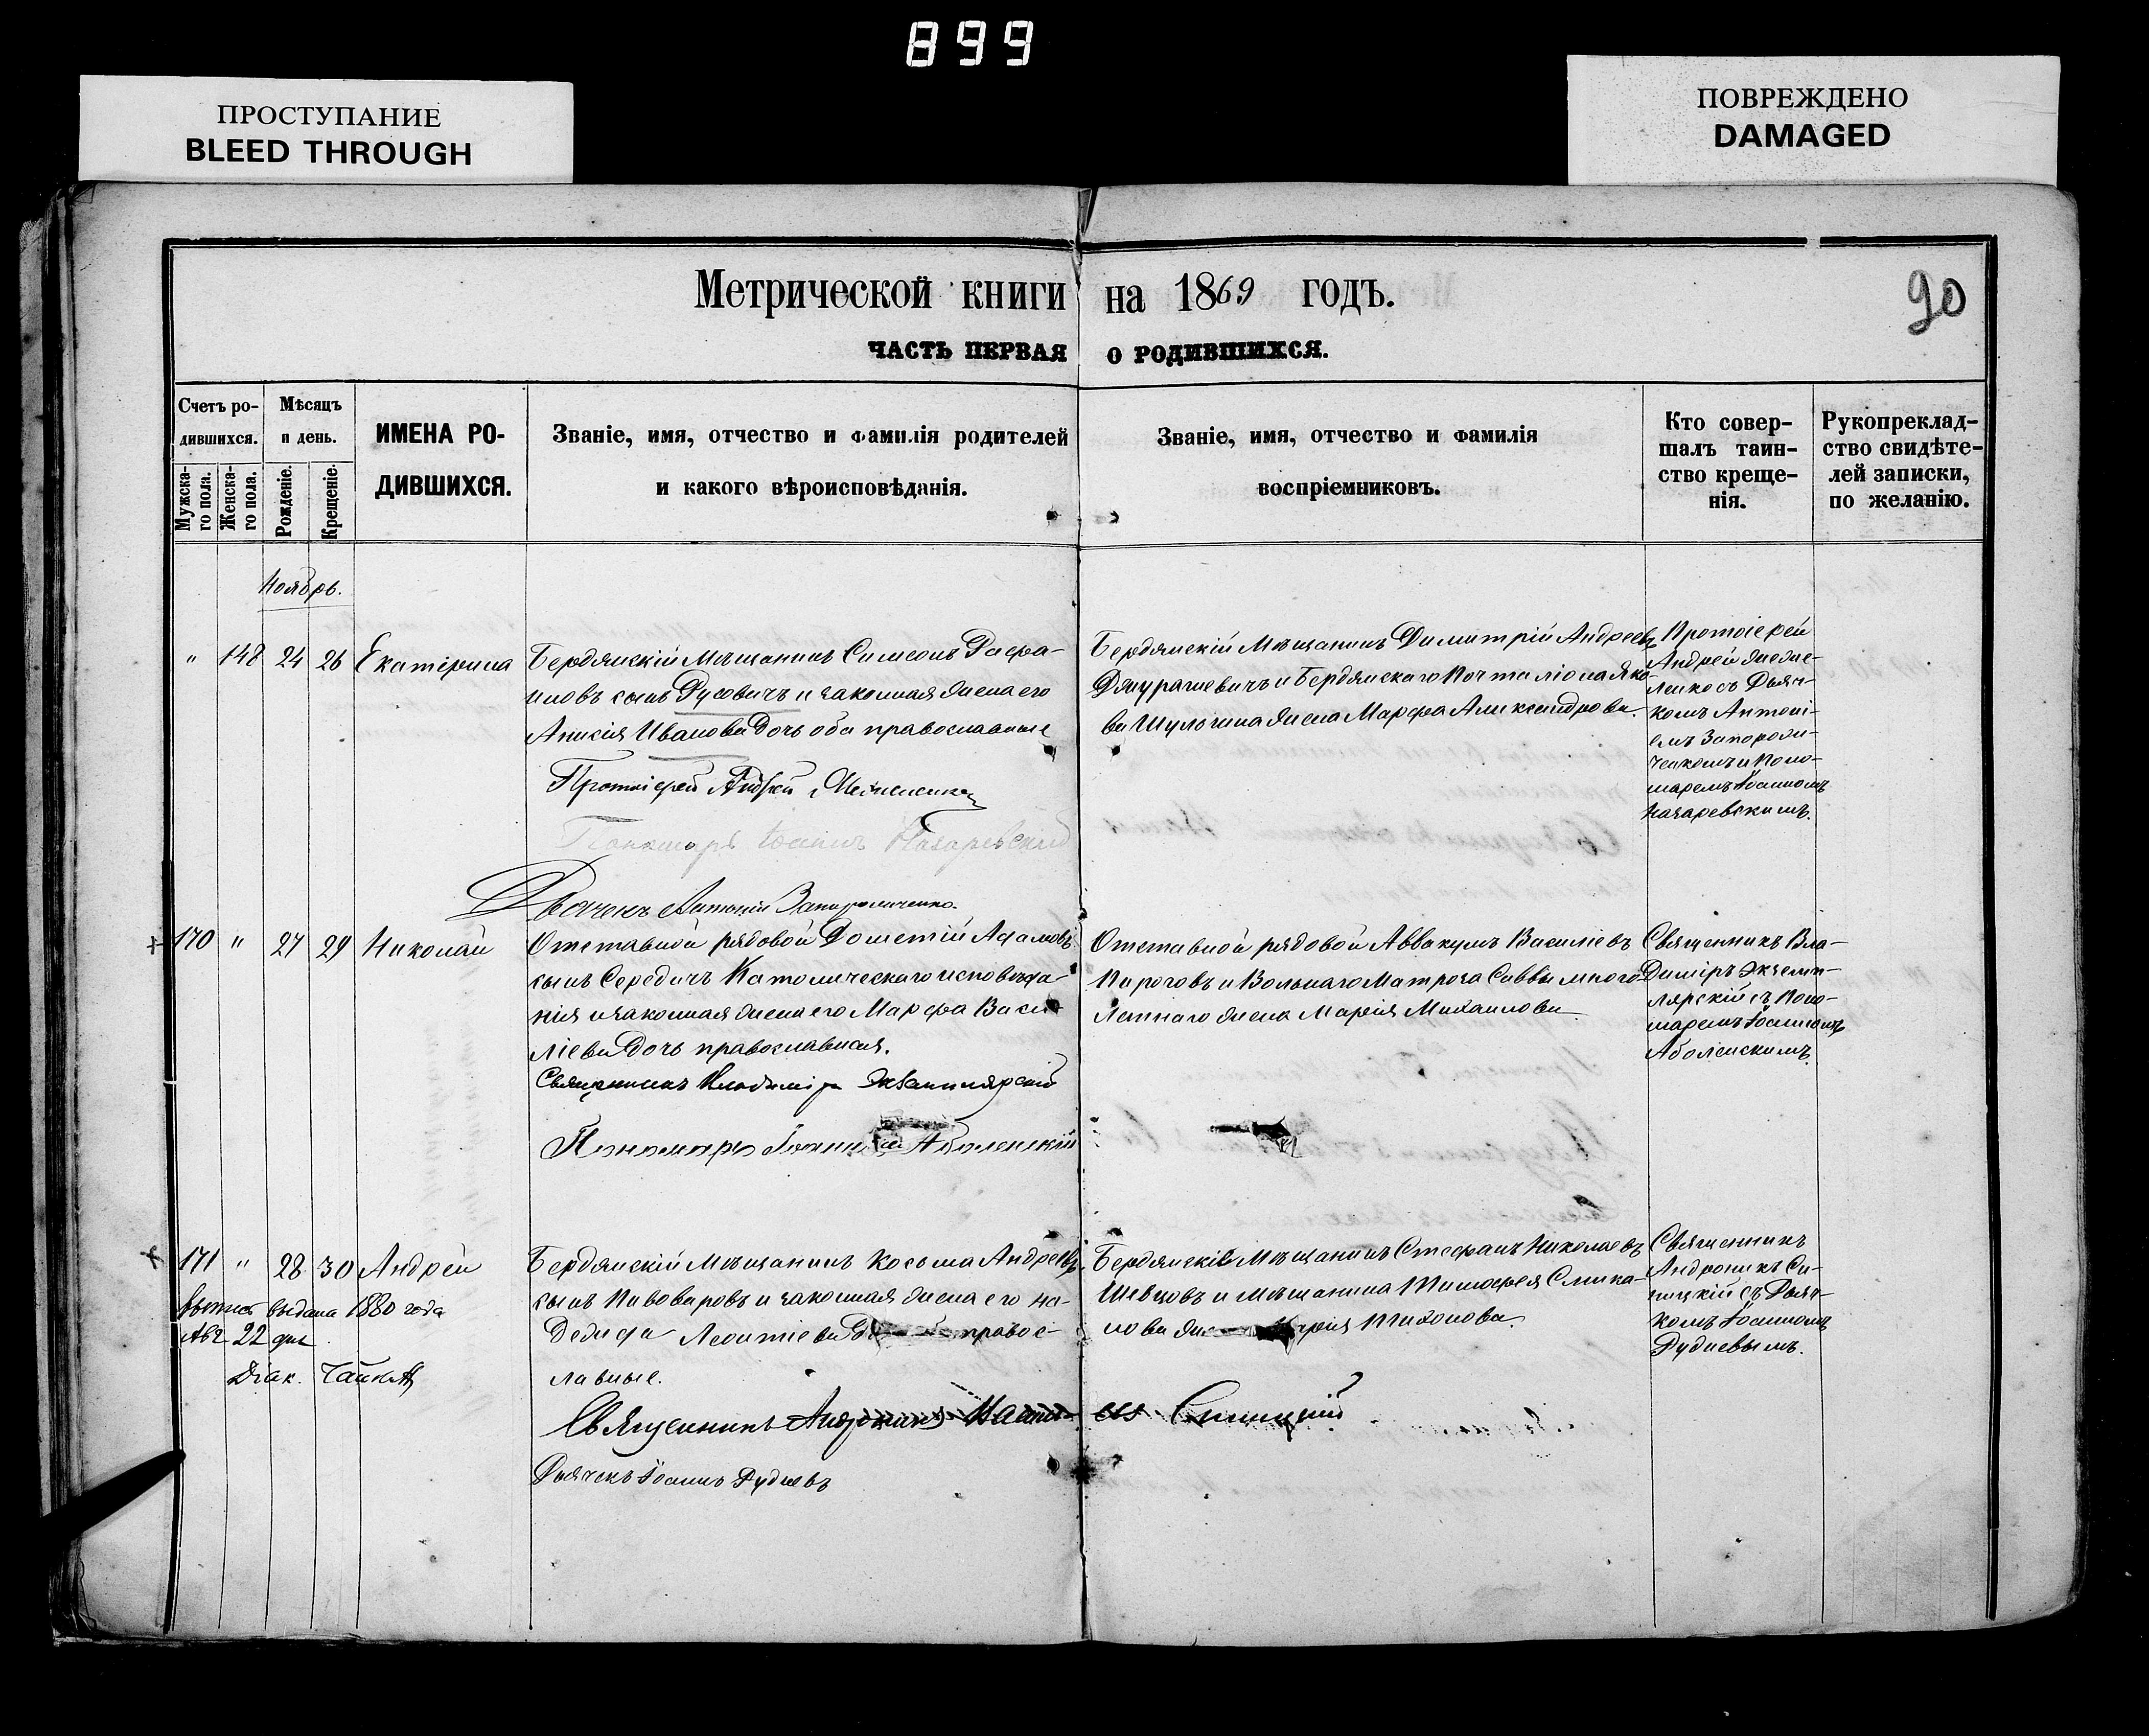 899
ПРОСТУПАНИЕ
BLEED THROUGH
ПОВРЕЖДЕНО
DAMAGED
Метрической книги на 1869 годъ.
90
ЧАСТЬ ПЕРВАЯ О РОДИВШИХСЯ.
Счетъ ро-
дившихся.
Мужска-
го пола.
Женска-
го пола.
Мѣсяцъ
и день.
Рожденіе.
Крещеніе.
ИМЕНА РО-
ДИВШИХСЯ.
Званіе, имя, отчество и фамилія родителей
и какого вѣроисповѣданія.
Званіе, имя, отчество и фамилія
воспріемниковъ.
Кто совер-
шалъ таин-
ство креще-
нія.
Рукоприклад-
ство свидѣте-
лей записки,
по желанію.
Ноябрь.
" 148 24 26 Екатерина
Бердянскій Мѣщанинъ Симеонъ Рафа-
иловъ сынъ Русовичъ и законная жена его
Анисія Иванова дочь оба православные
Протоіерей Андрей
Пономарь Іоаннъ Назаревскій
Дьячекъ Антоній Запорожченко.
Бердянскій Мѣщанинъ Димитрій Андреевъ
и Бердянскаго Почталіона Яко-
ва Шульгина жена Марфа Александрова.
Протоіерей
Андрей
ленко съ Дьяч-
комъ Антоні-
емъ Запорож-
ченкомъ и Поно-
маремъ Іоанномъ
Назаревскимъ.
170 " 27 29 Николай
Отставной рядовой Дометій Адамовъ
сынъ Середичъ Католическаго исповѣда-
нія и законная жена его Марфа Васи-
ліева дочь православная.
Священникъ Владиміръ Экземплярскій
Пономарь Іоаннъ Аболенскій
Отставной рядовой Аввакумъ Василіевъ
Пироговъ и Вольнаго Матроса Саввы Много-
лѣтняго жена Марія Михаилова
Священникъ Вла-
диміръ Экземп-
лярскій съ Поно-
маремъ Іоанномъ
Аболенскимъ.
171 " 28 30 Андрей
выпись выдана 1880 года
Авг 22 дня
Діак. Чайка
Бердянскій Мѣщанинъ Косьма Андреевъ
сынъ Пивоваровъ и законная жена его На-
дежда Леонтіева правос-
лавные.
Священникъ Андроникъ Синицкій
Дьячекъ Іоаннъ Рудневъ
Бердянскій Мѣщанинъ Стефанъ Николаевъ
Шевцовъ и мѣщанина Тимофея
нова Марія Тихонова.
Священникъ
Андроникъ Си-
ницкій съ Дьяч-
комъ Іоанномъ
Рудневымъ.